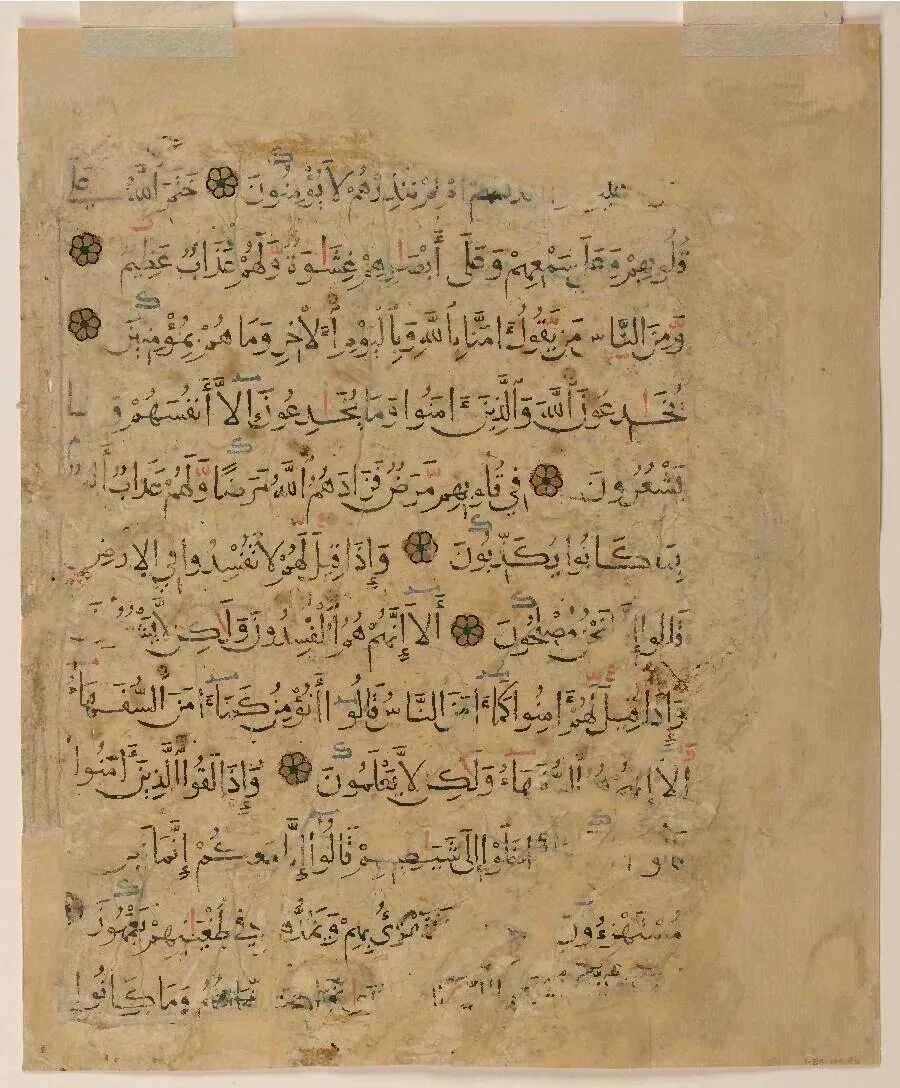 تنذرهم لا يؤمنون ختم الله
قلوبهم وعلى سمعهم وعلى أبصرهم غشوة ولهم عذاب عظيم
ومن الناس من يقول ءامنا بالله وباليوم الأخر وما هم بمؤمنين
يخدعون الله والذين ءامنوا وما يخدعون إلا أنفسهم و
يشعرون في قلوبهم مرض فزادهم الله مرضا ولهم عذاب
كانوا يكذبون وإذا قيل لهم لا تفسدوا في الارض
قالوا نحن مصلحون ألا إنهم هم المفسدون ولكن لا
وإذا قيل لهم ءامنوا كما ءامن الناس قالوا أنؤمن كما ءامن السفهاء
ألا إنهم السفهاء ولكن لا يعلمون وإذا لقوا الذين ءامنوا
إلى شيطينهم قالوا إنا معكم إنما
مستهزءون بهم ويمدهم في طغينهم يعمهون
وما كانوا